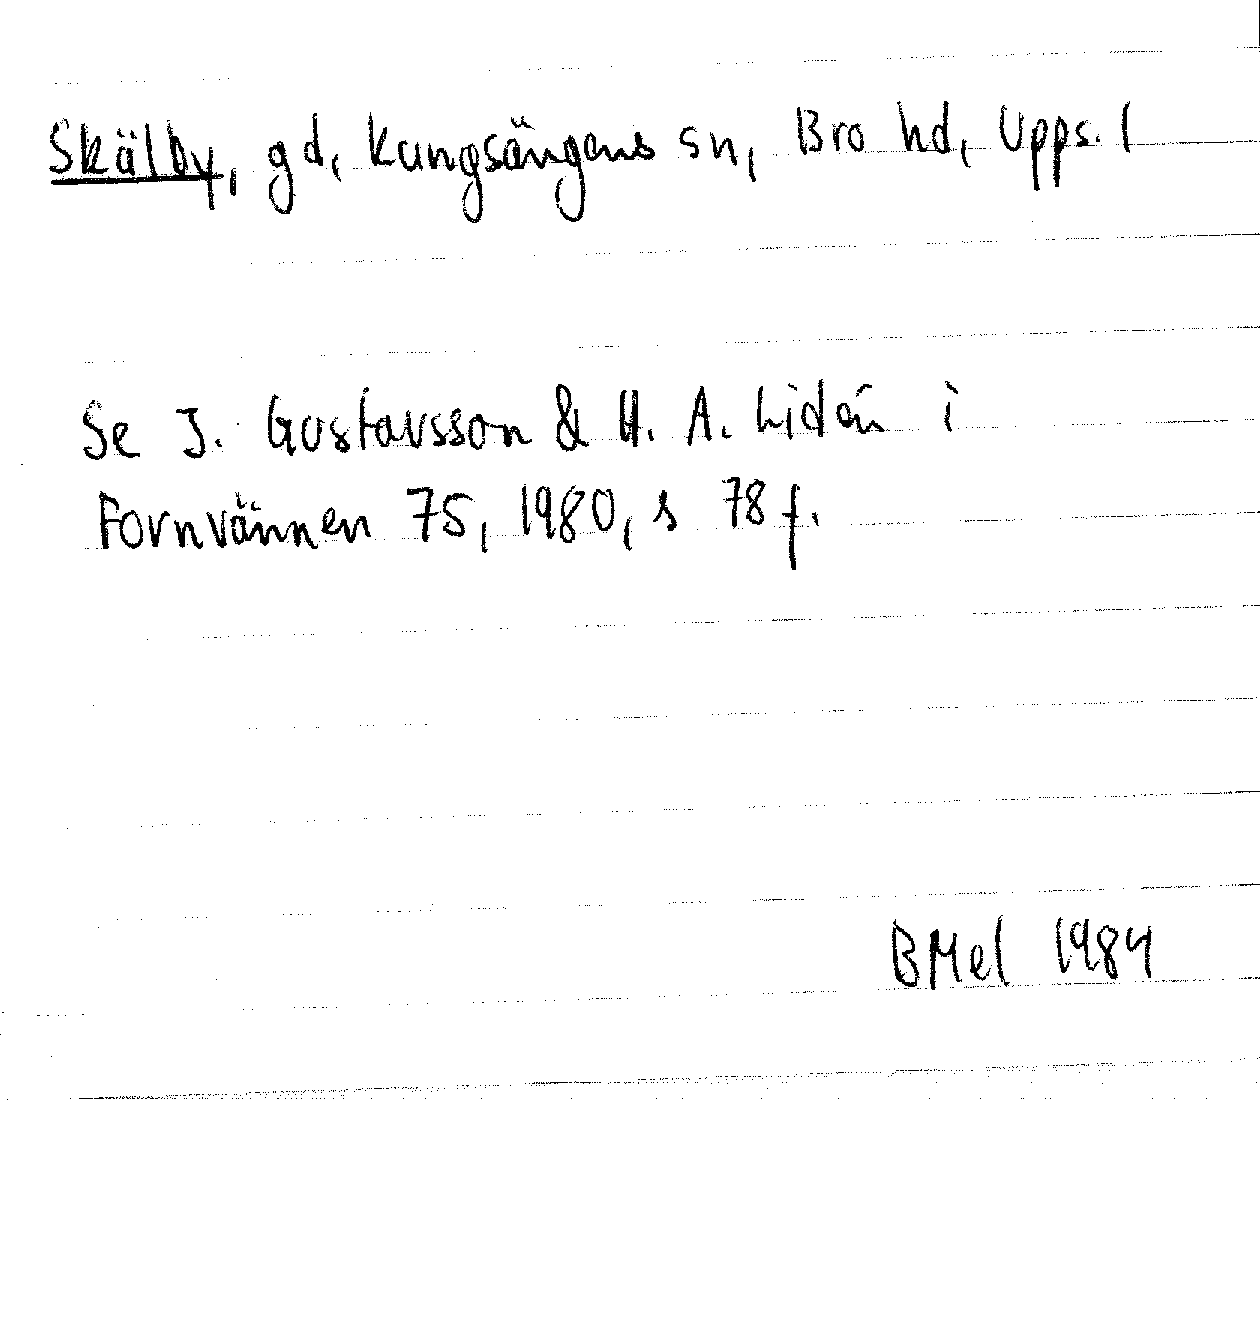 Skälby, gd, Kungsängens sn, Bro hd, Upps. l
Se J. Gustavsson & H. A. Lidén i
Fornvännen 75, 1980, s 78 f.
BMel 1984